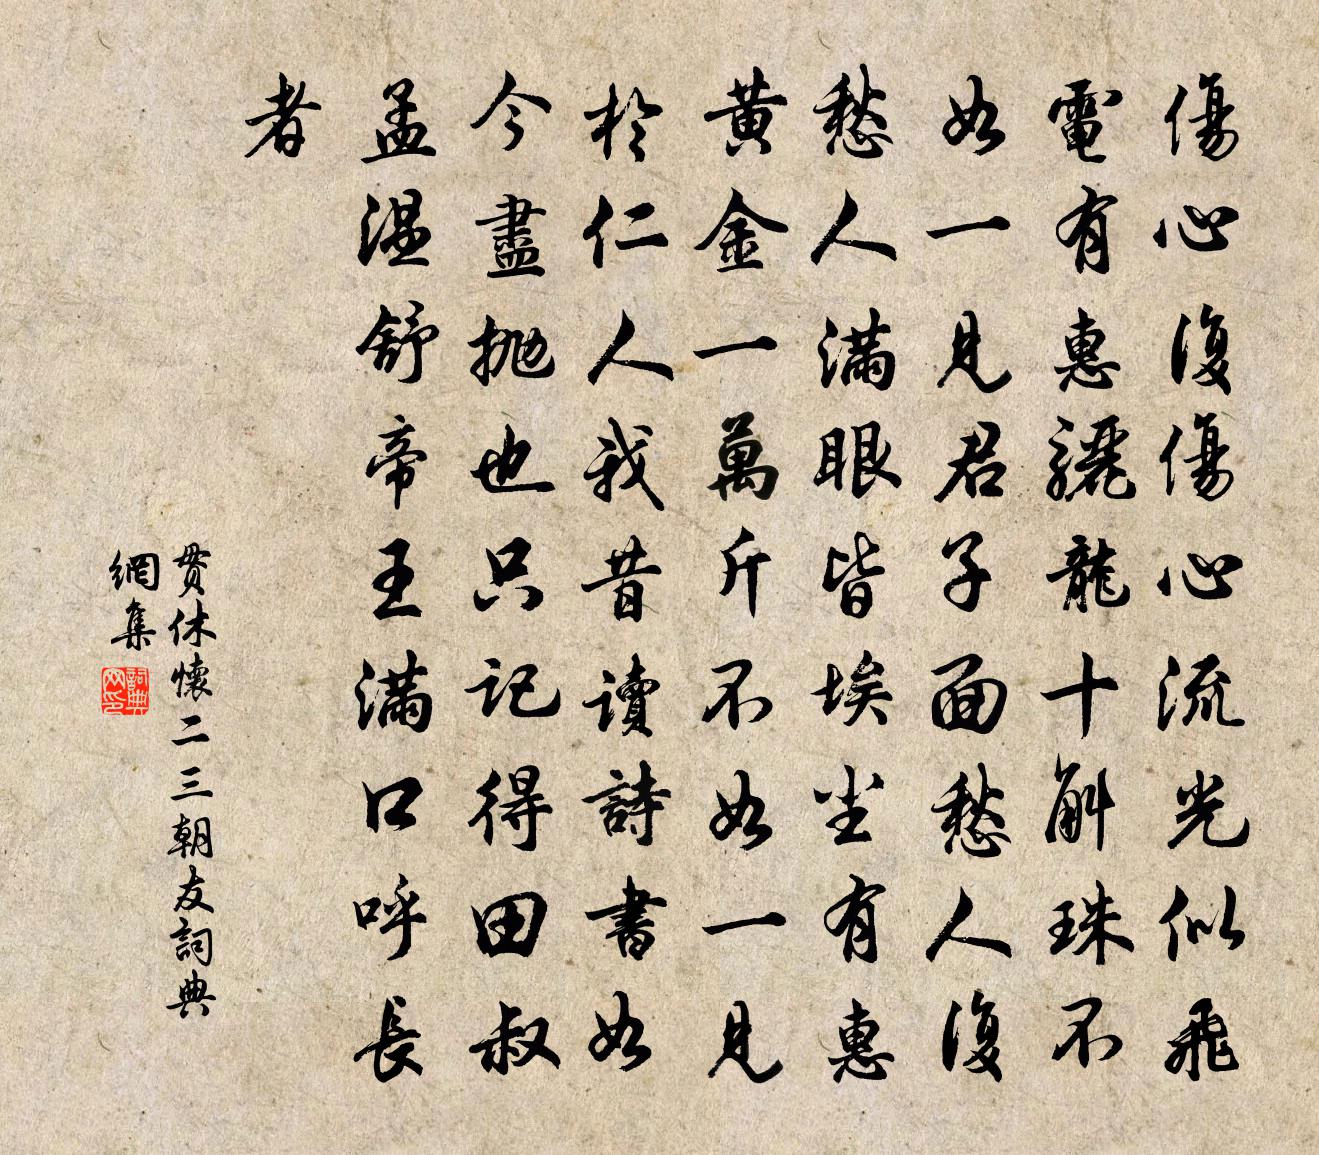 傷心復傷心流光似飛
電有惠驪龍十斛珠不
如一見君子面愁人復
愁人滿眼皆埃坌有惠
黃金一萬斤不如一見
於仁人我昔讀詩書如
今盡拋也只記得田叔
孟溫舒帝王滿口呼長
者
貫休懷二三朝友詞典
網集
詞典
网印